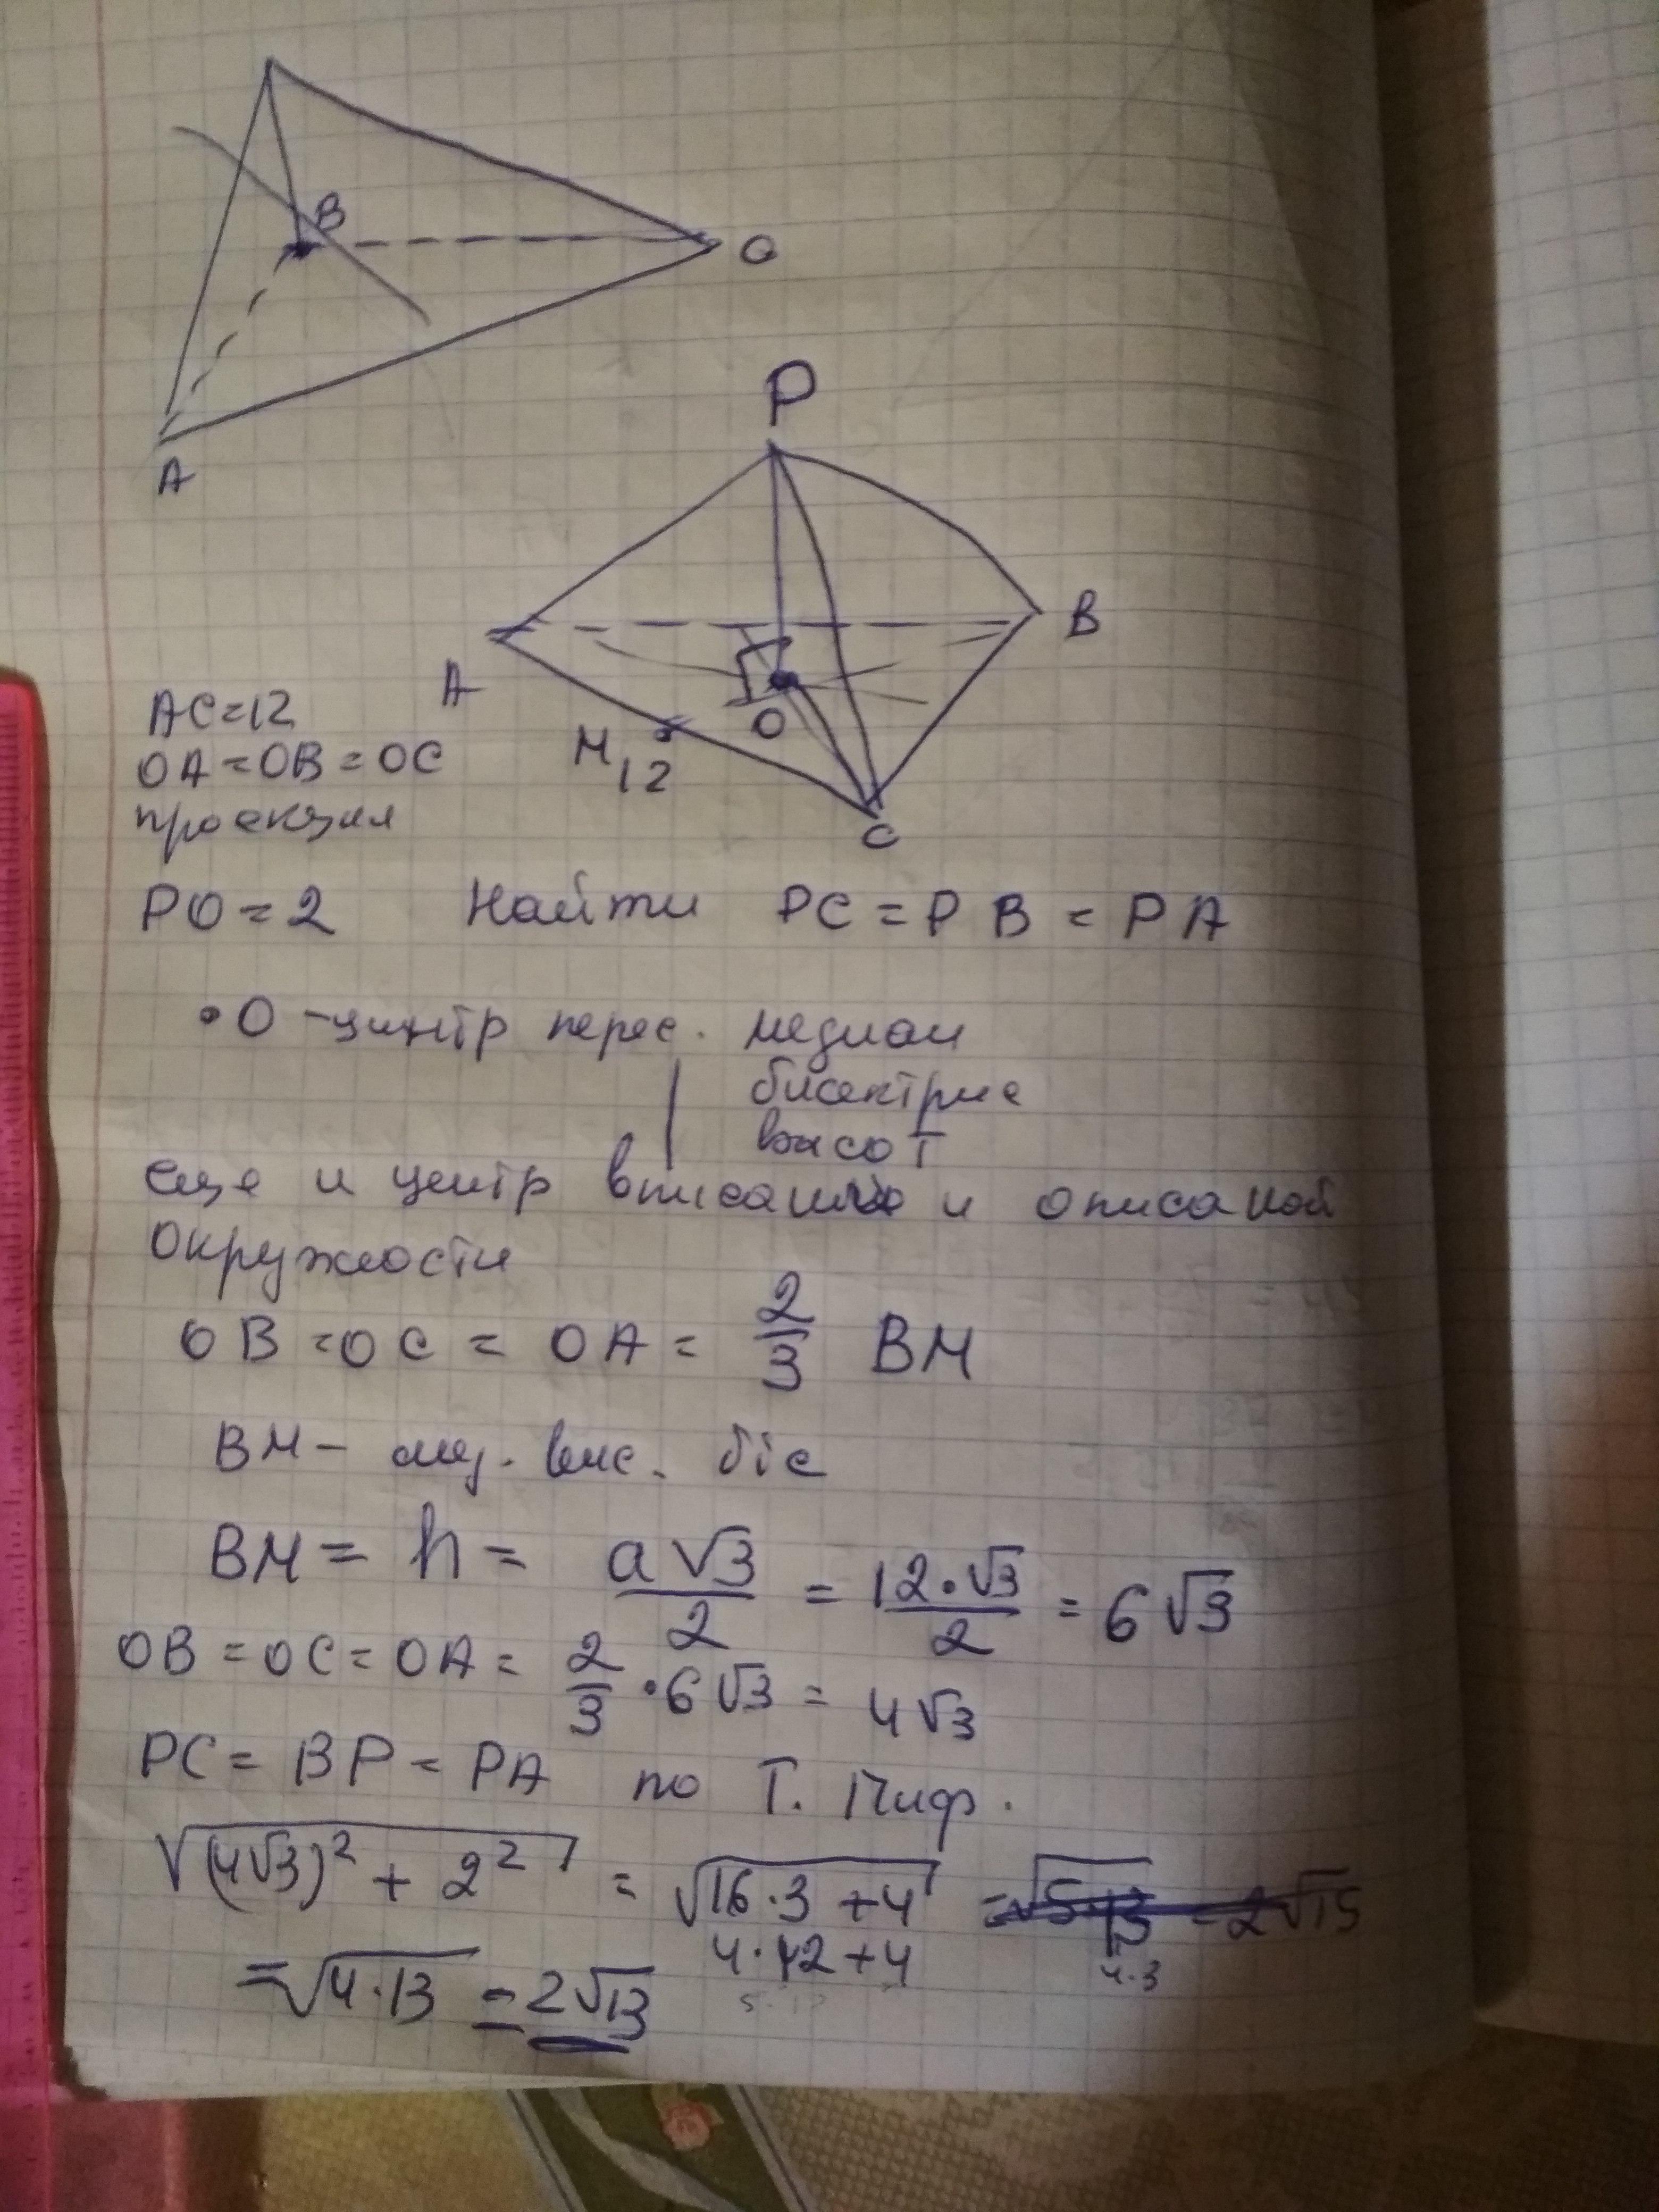 B
C
A
P
B
A
O
M
12
C
AC=12
OA=OB=OC
проекция
PO=2 Найти PC=PB=PA
•O -центр перес. медиан
биссектрис
высот
еще и центр вписаной и описаной
окружности
OB=OC=OA= 2/3 BM
BM- мед. выс. біс
BM= h= a√3/2 = 12·√3/2 = 6√3
OB=OC=OA= 2/3 ·6√3= 4√3
PC=BP=PA по Т. Пиф.
√(4√3)²+2² = √16·3+4 = 2√15
4·12+4
4·3
=√4·13 =2√13